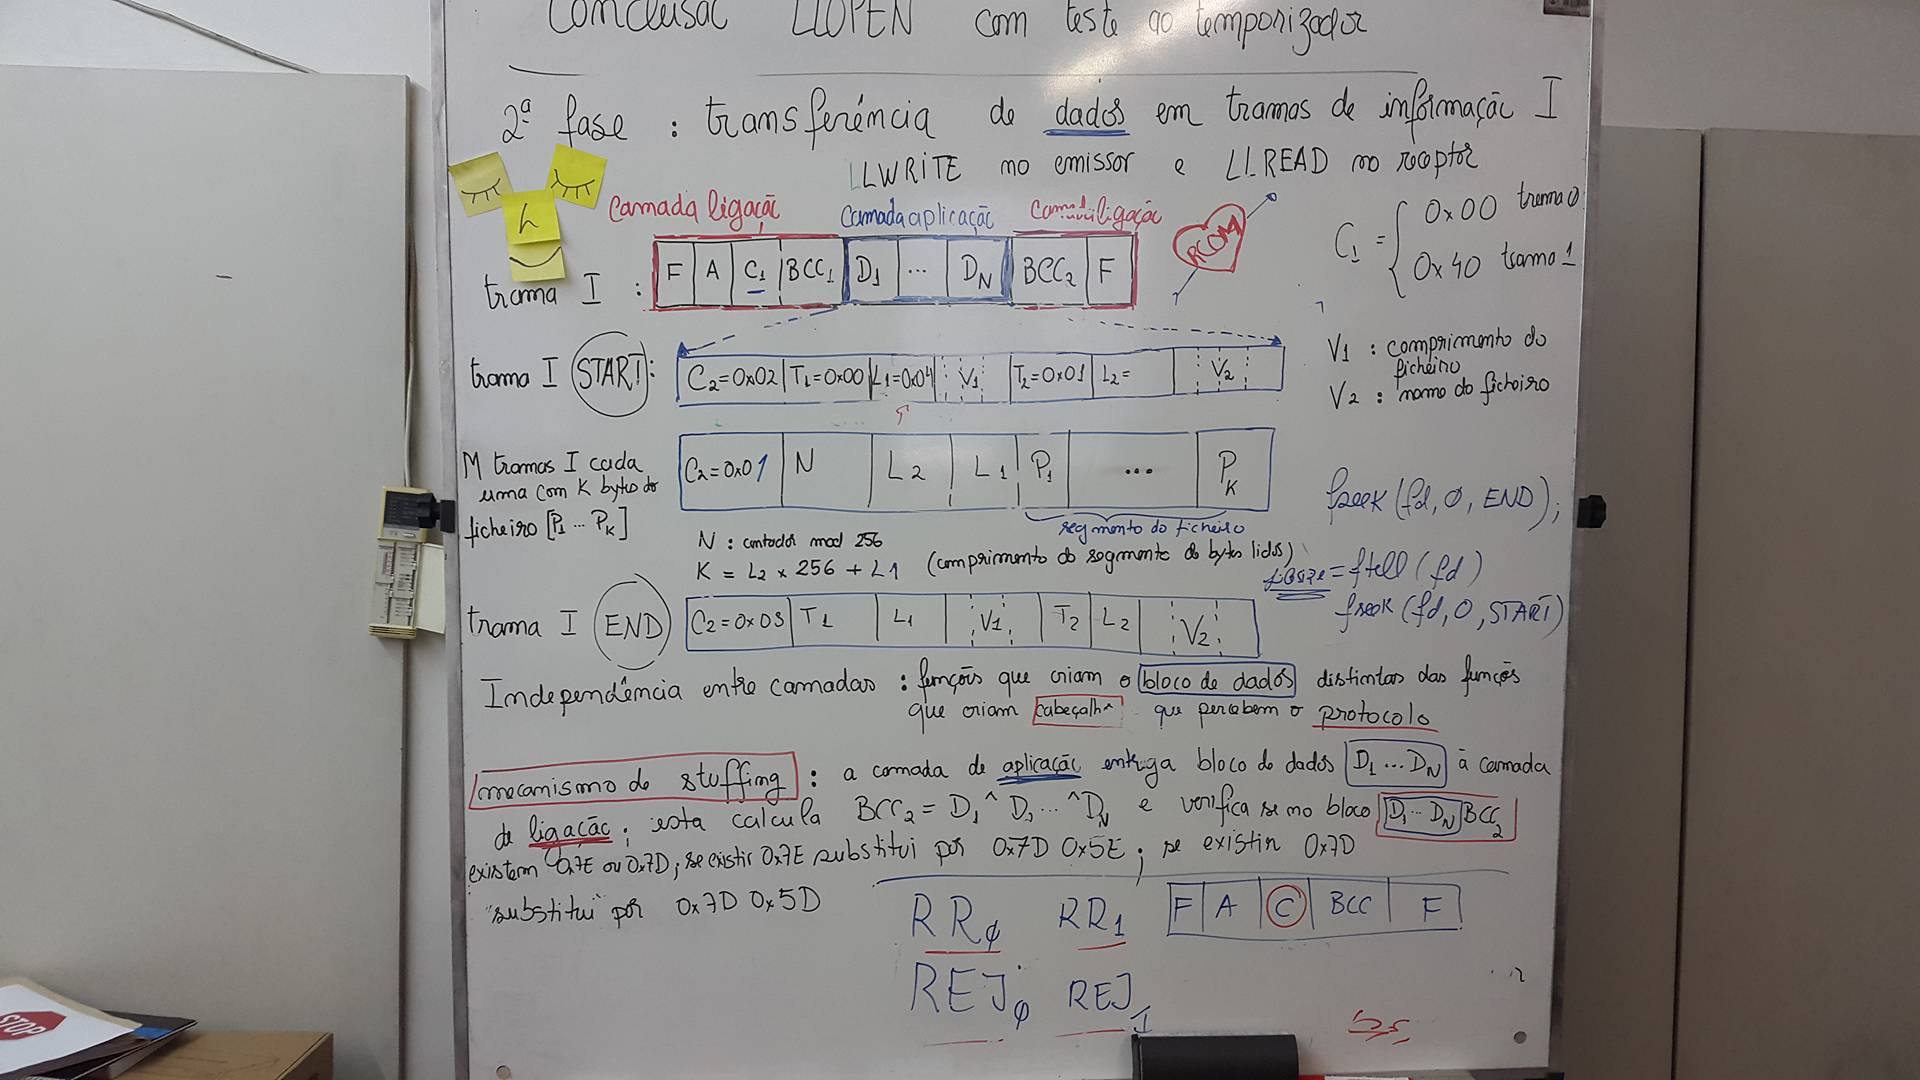 Conclusão LLOPEN com teste ao temporizador
2ª fase : transferência de dados em tramas de informação I
LLWRITE no emissor e LLREAD no receptor
Camada ligação Camada aplicação ligação
RCOM
C1 = { 0x00 trama 0
0x40 trama 1
trama I : F A C1 BCC1 D1 ... DN BCC2 F
trama I START : C2=0x02 T1=0x00 L1=0x04 V1 T2=0x01 L2= V2
V1 : comprimento do
ficheiro
V2 : nome do ficheiro
M tramas I cada
uma com K bytes do
ficheiro [P1 ... PK]
C2=0x01 N L2 L1 P1 ... PK
segmento do ficheiro
N : contador mod 256
K = L2 x 256 + L1 (comprimento do segmento de bytes lidos)
fseek (fd, 0, END);
= ftell (fd)
fseek (fd, 0, START)
trama I END C2=0x03 T1 L1 V1 T2 L2 V2
Independência entre camadas : funções que criam o bloco de dados distintas das funções
que criam cabeçalho que percebem o protocolo
mecanismo de stuffing : a camada de aplicação entrega bloco de dados D1 ... DN à camada
de ligação ; esta calcula BCC2 = D1 ^ D2 ... ^ DN e verifica se no bloco D1 ... DN BCC2
existem 0x7E ou 0x7D ; se existir 0x7E substitui por 0x7D 0x5E ; se existir 0x7D
substitui por 0x7D 0x5D
RR0 RR1 F A C BCC F
REJ0 REJ1
STOP